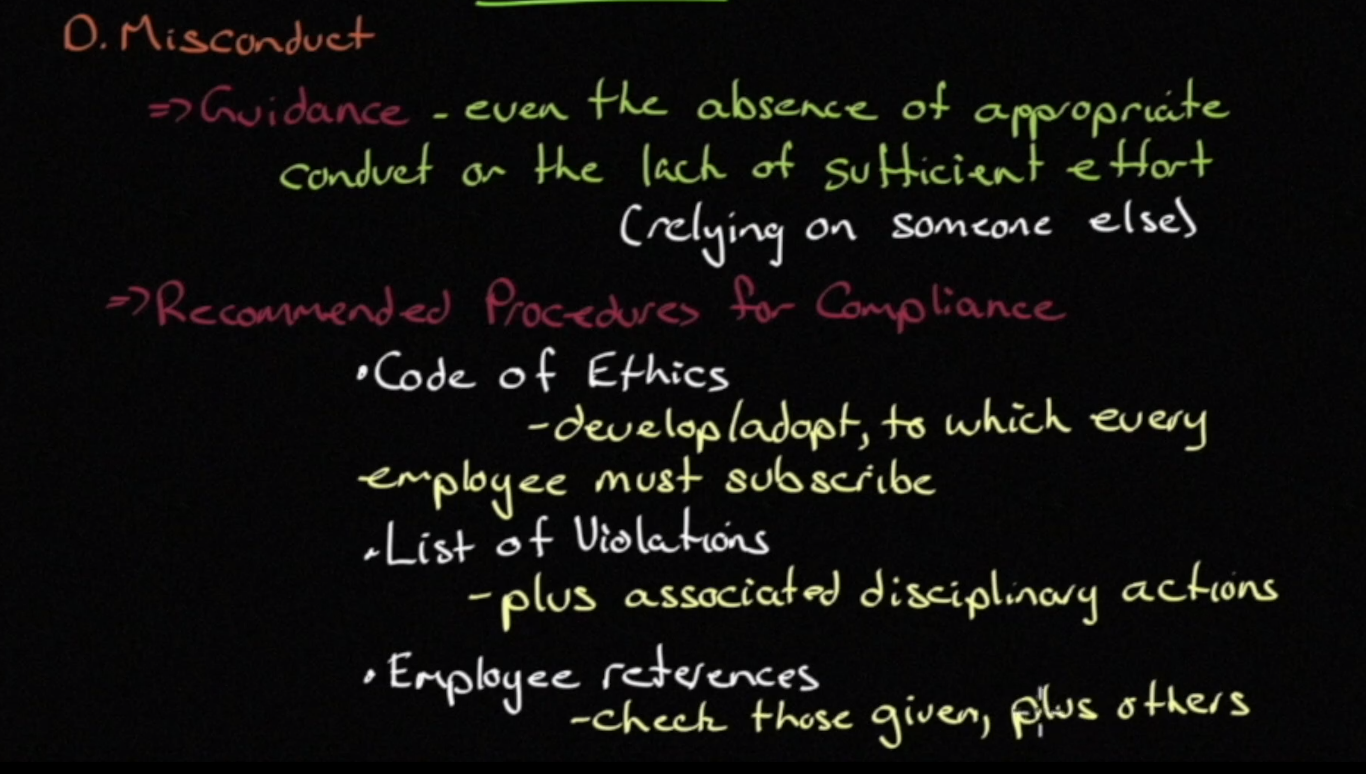 D. Misconduct
=> Guidance - even the absence of appropriate
conduct or the lack of sufficient effort
(relying on someone else)
=> Recommended Procedures for Compliance
• Code of Ethics
- develop/adopt, to which every
employee must subscribe
• List of Violations
- plus associated disciplinary actions
• Employee references
- check those given, plus others